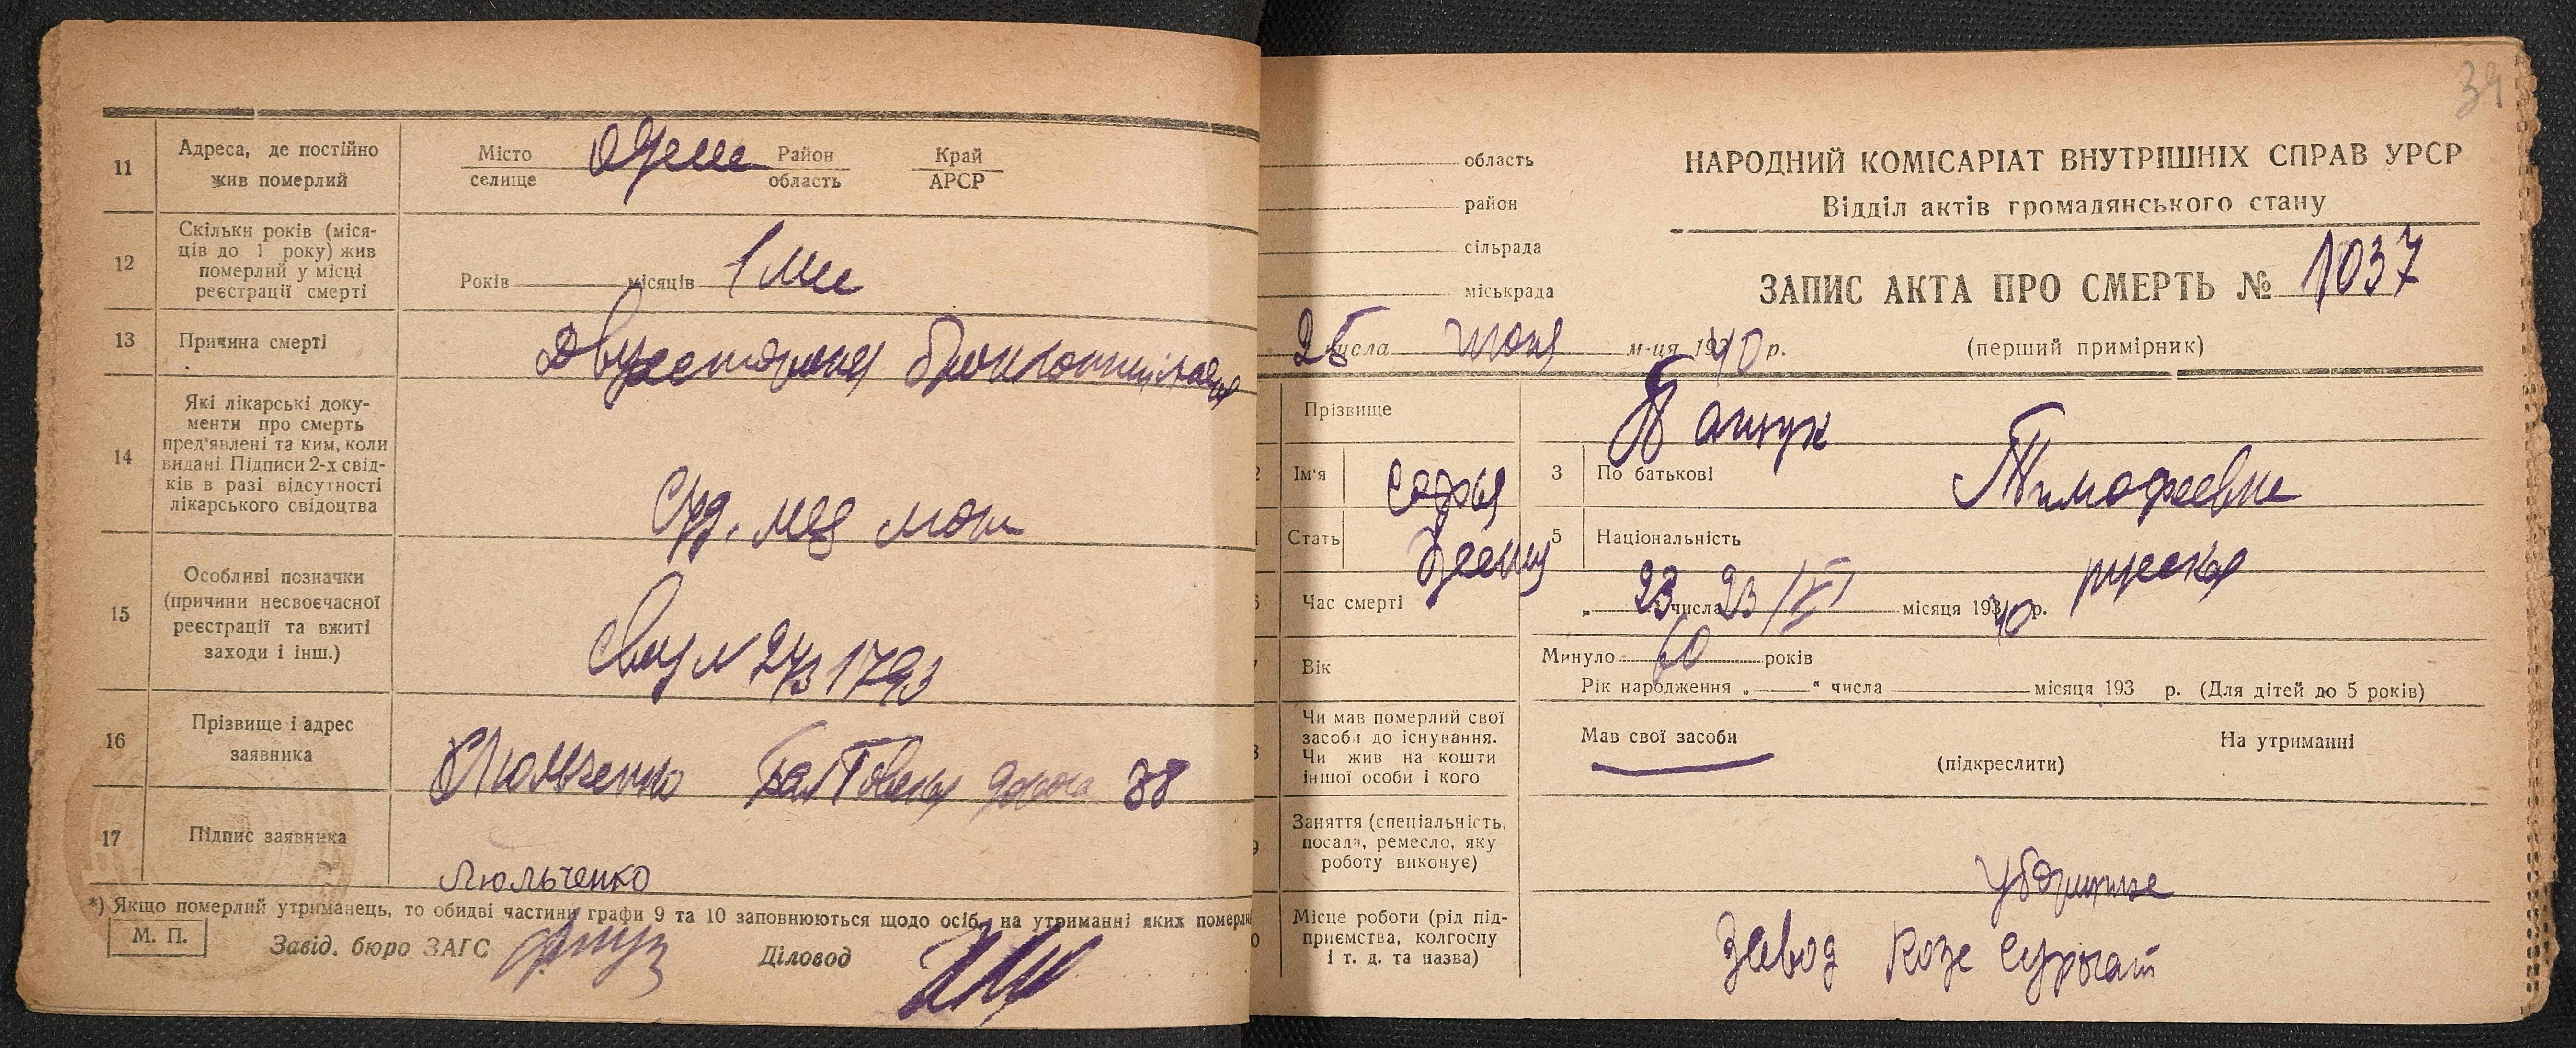 11 Адреса, де постійно жив померлий Місто селище Одесса Район область Край АРСР
12 Скільки років (міся-
ців до 1 року) жив
померлий у місці
реєстрації смерті
Років місяців 1
13 Причина смерті Двухсторонняя бронхопневмония
14 Які лікарські доку-
менти про смерть
пред'явлені та ким, коли
видані Підписи 2-х свід-
ків в разі відсутності
лікарського свідоцтва
Суд. мед
15 Особливі позначки
(причини несвоєчасної
реєстрації та вжиті
заходи і інш.)
1793
16 Прізвище і адрес
заявника
Люльченко Балтовская дорога 38
17 Підпис заявника
Люльченко
*) Якщо померлий утриманець, то обидві частини графи 9 та 10 заповнюються щодо осіб, на утриманні яких помер
М. П. Завід. бюро ЗАГС Діловод
34
область
район
сільрада
міськрада
НАРОДНИЙ КОМІСАРІАТ ВНУТРІШНІХ СПРАВ УРСР
Відділ актів громадянського стану
ЗАПИС АКТА ПРО СМЕРТЬ № 1037
числа июня м-ця 1940 р. (перший примірник)
Прізвище
2 Ім'я Софья 3 По батькові Тимофеевна
Стать 5 Національність русская
Час смерті „ 23 числа 23/VI місяця 1940 р.
Вік Минуло 60 років
Рік народження „ “ числа місяця 193 р. (Для дітей до 5 років)
Чи мав померлий свої
засоби до існування.
Чи жив на кошти
іншої особи і кого
Мав свої засоби (підкреслити) На утриманні
Заняття (спеціальність,
посада, ремесло, яку
роботу виконує)
уборщица
Місце роботи (рід під-
приємства, колгоспу
і т. д. та назва)
Завод Козе Сурогат